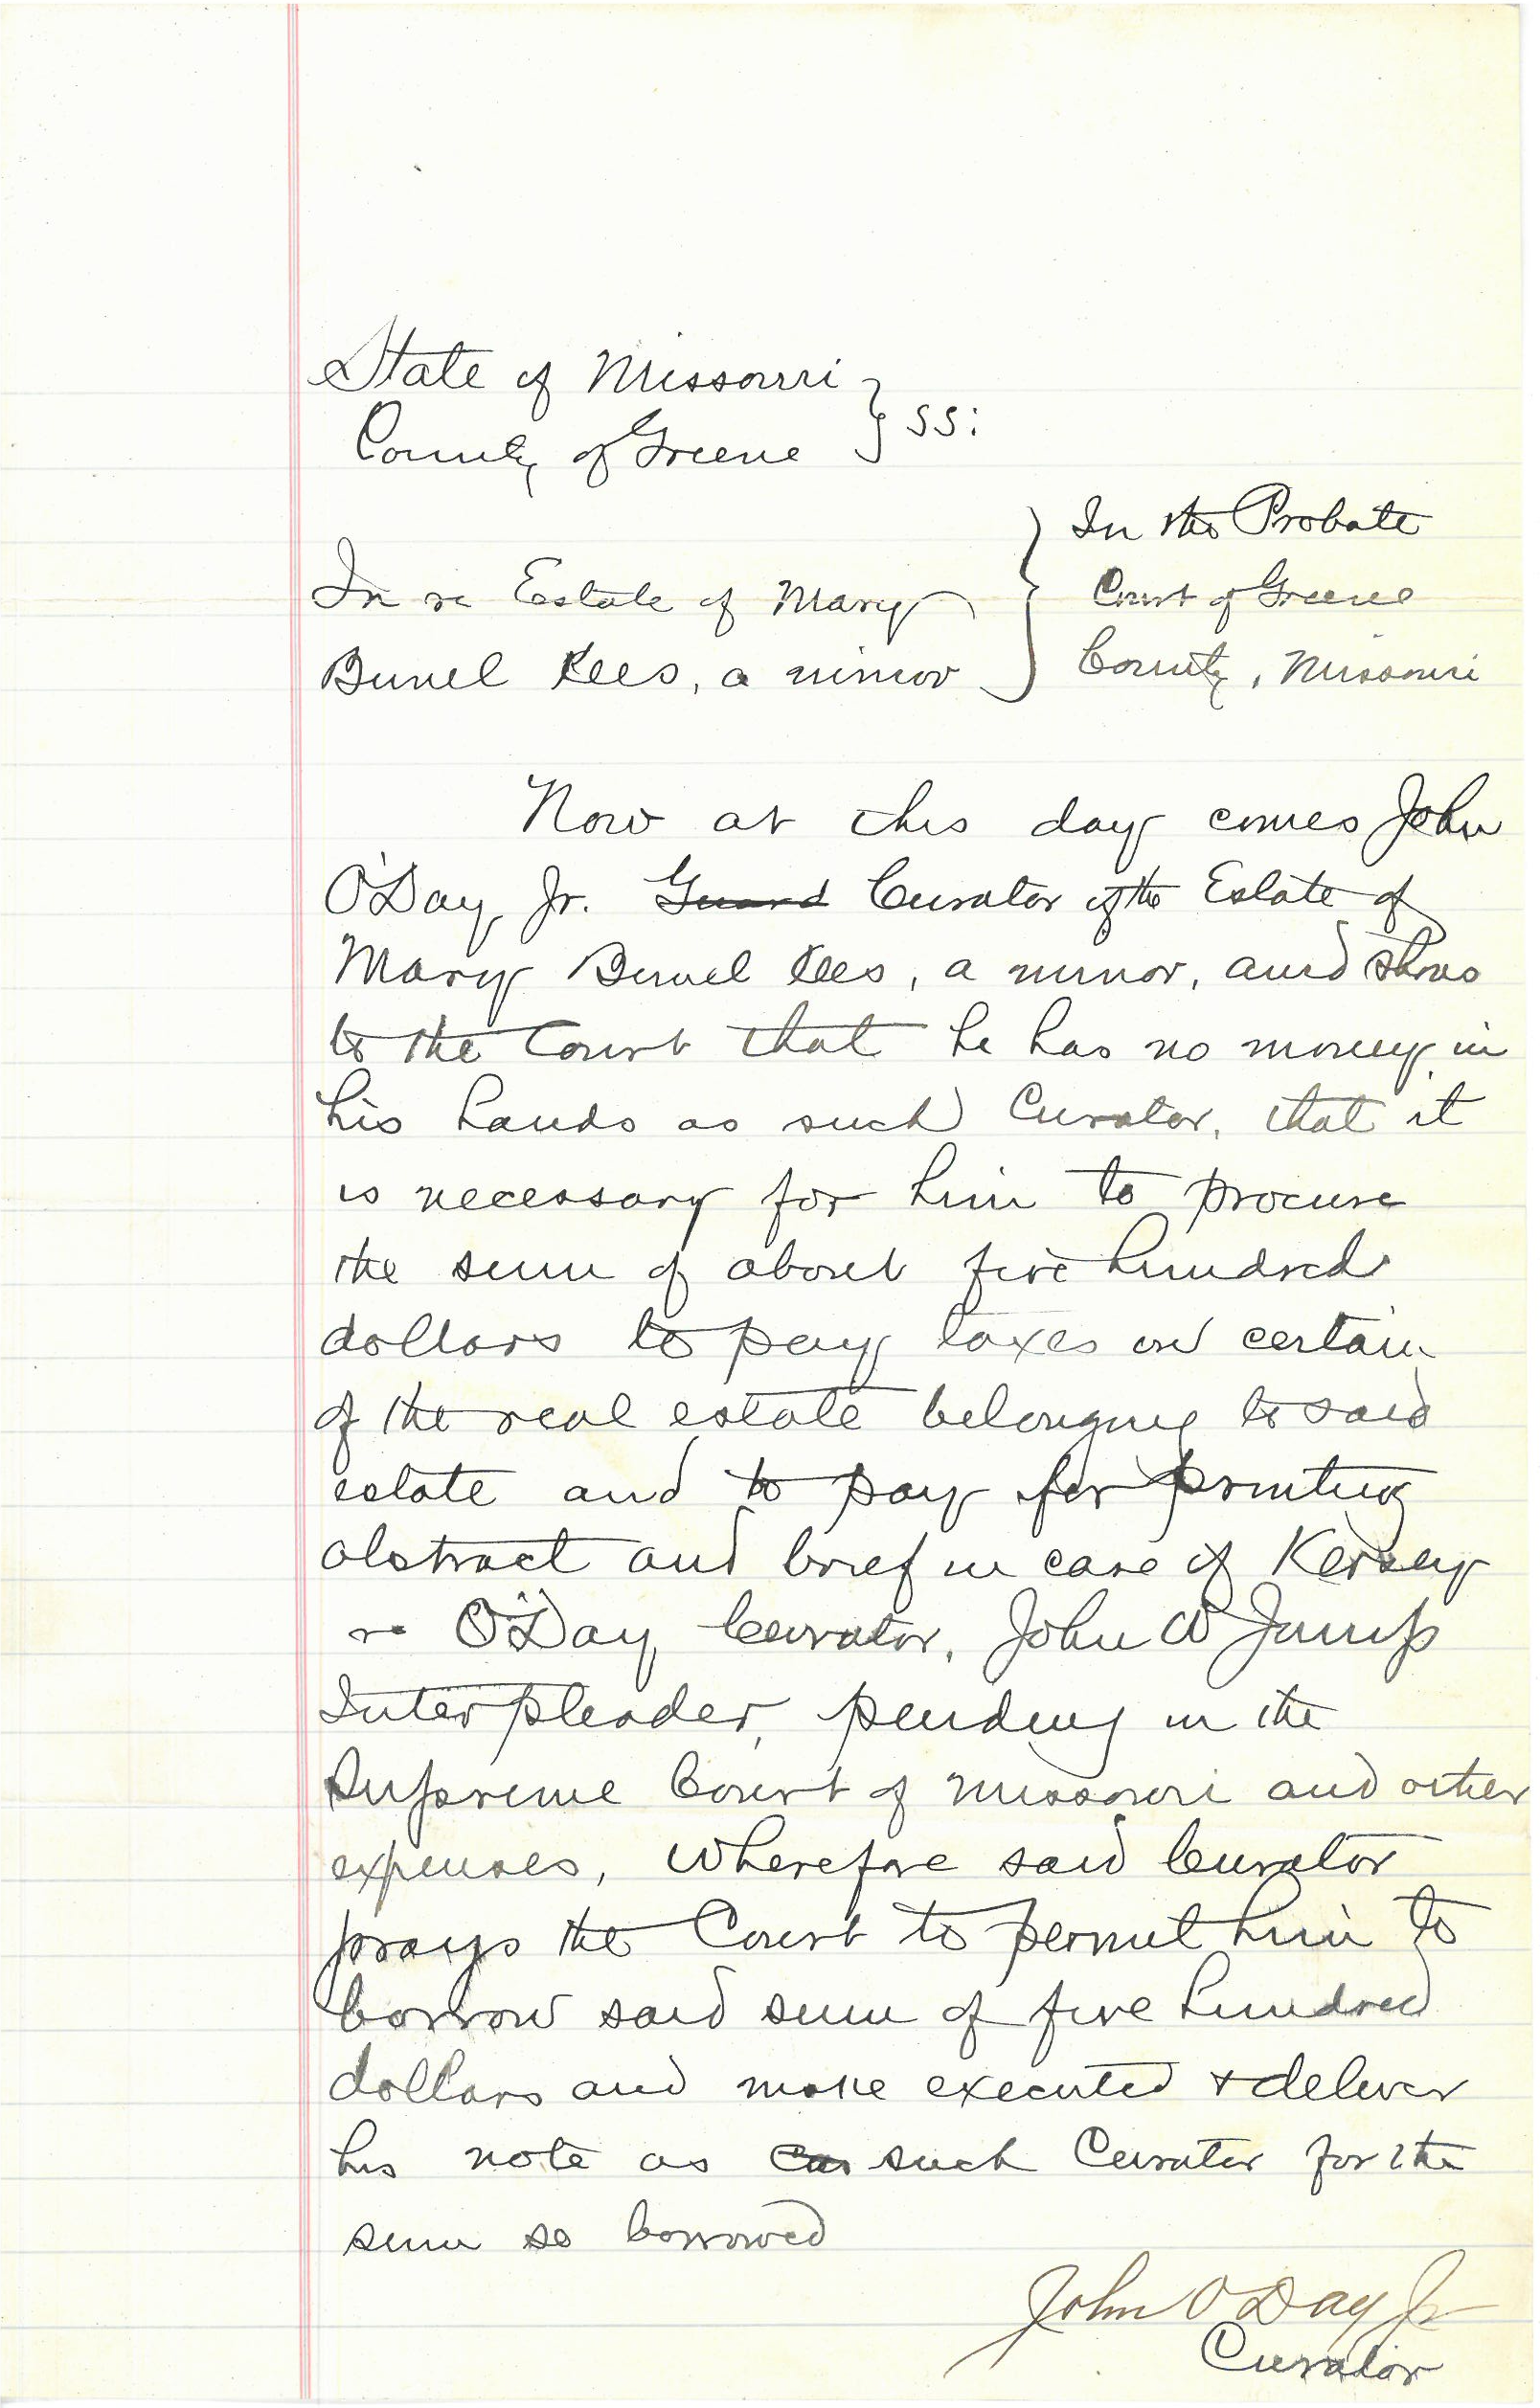 State of Missouri } ss:
County of Greene
In the Probate
In re Estate of Mary } Court of Greene
Bunel Kees, a minor } County, Missouri
Now at this day comes John
O'Day, Jr. Guard Curator of the Estate of
Mary Bunel Kees, a minor, and shows
to the Court that he has no money in
his hands as such Curator, that it
is necessary for him to procure
the sum of about five hundred
dollars to pay taxes on certain
of the real estate belonging to said
estate and to pay for printing
abstract and brief in case of Kersey
vs O'Day, Curator, John W Jump
Interpleader, pending in the
Supreme Court of Missouri and other
expenses, Wherefore said Curator
prays the Court to permit him to
borrow said sum of five hundred
dollars and make executed & deliver
his note as Cur such Curator for the
sum so borrowed
John O'Day Jr
Curator